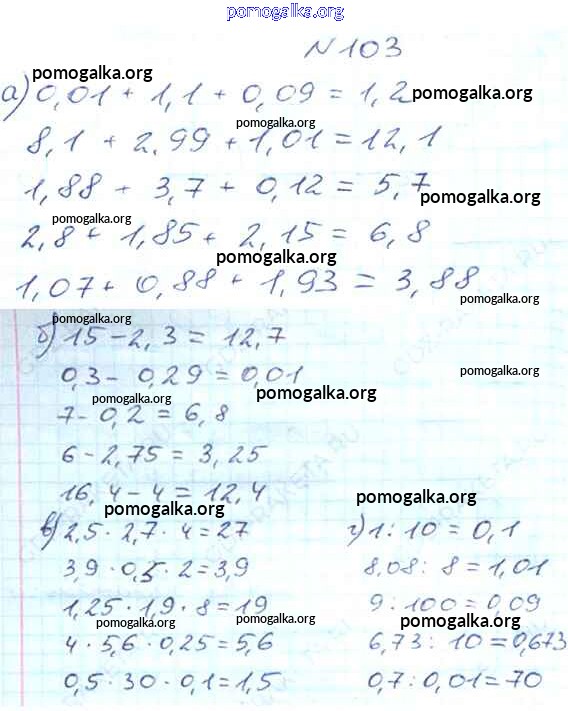 pomogalka.org
№103
pomogalka.org
а) 0,01 + 1,1 + 0,09 = 1,2
pomogalka.org
pomogalka.org
8,1 + 2,99 + 1,01 = 12,1
1,88 + 3,7 + 0,12 = 5,7
pomogalka.org
pomogalka.org
2,8 + 1,85 + 2,15 = 6,8
pomogalka.org
1,07 + 0,88 + 1,93 = 3,88
pomogalka.org
pomogalka.org
б) 15 - 2,3 = 12,7
0,3 - 0,29 = 0,01
pomogalka.org
pomogalka.org
pomogalka.org
7 - 0,2 = 6,8
6 - 2,75 = 3,25
16,4 - 4 = 12,4
pomogalka.org
pomogalka.org
в) 2,5 · 2,7 · 4 = 27
3,9 · 0,5 · 2 = 3,9
1,25 · 1,9 · 8 = 19
pomogalka.org
pomogalka.org
4 · 5,6 · 0,25 = 5,6
0,5 · 30 · 0,1 = 1,5
г) 1 : 10 = 0,1
8,08 : 8 = 1,01
9 : 100 = 0,09
pomogalka.org
6,73 : 10 = 0,673
0,7 : 0,01 = 70